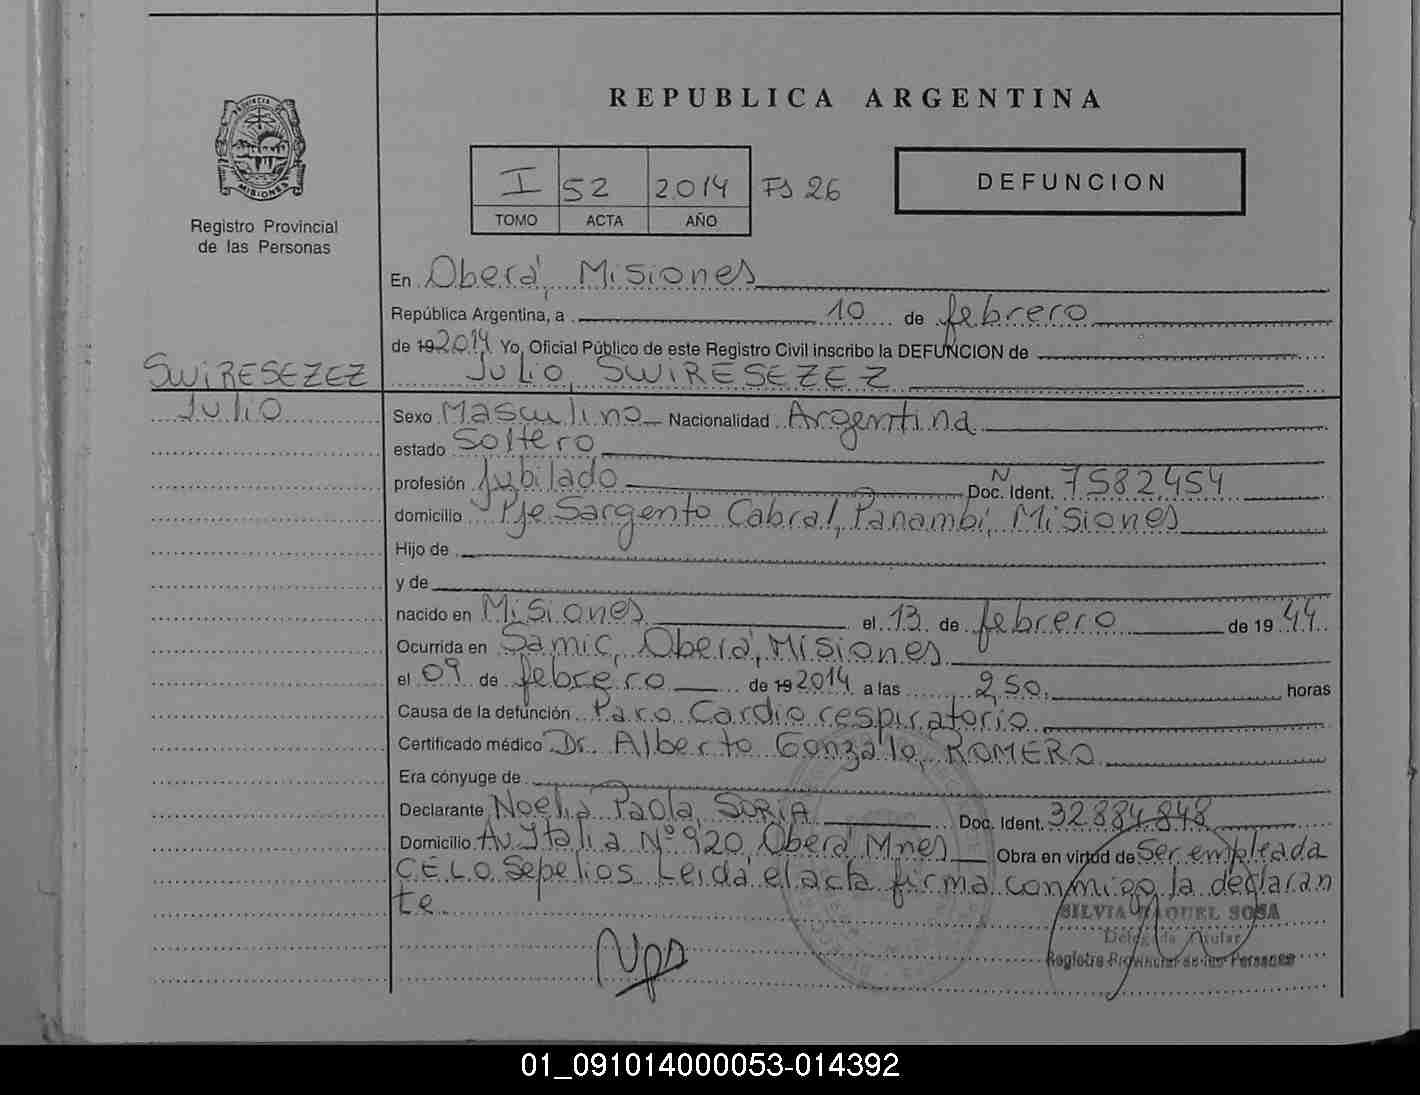 REPUBLICA ARGENTINA
PROVINCIA DE
MISIONES
Registro Provincial
de las Personas
I 52 2014 Fs 26
TOMO ACTA AÑO
DEFUNCION
En Oberá, Misiones
República Argentina, a 10 de febrero
de 19 2014 Yo, Oficial Público de este Registro Civil inscribo la DEFUNCION de
SWIRESEZEZ
Julio
JULIO, SWIRESEZEZ
Sexo Masculino Nacionalidad Argentina
estado Soltero
profesión Jubilado Doc. Ident. N 7582454
domicilio Pje Sargento Cabral, Panambí, Misiones
Hijo de
y de
nacido en Misiones el 13 de febrero de 19 44
Ocurrida en Samic, Oberá, Misiones
el 09 de febrero de 19 2014 a las 2,50 horas
Causa de la defunción Paro Cardio respiratorio
Certificado médico Dr. Alberto Gonzalo, ROMERO
Era cónyuge de
Declarante Noelia Paola, SORIA Doc. Ident. 32884848
Domicilio Av Italia Nº 920, Oberá Mnes Obra en virtud de Ser empleada
C.E.L.O Sepelios Leida el acta firma conmigo la declaran
te
SILVIA RAQUEL SOSA
Delegada Titular
Registro Provincial de las Personas
01_091014000053-014392